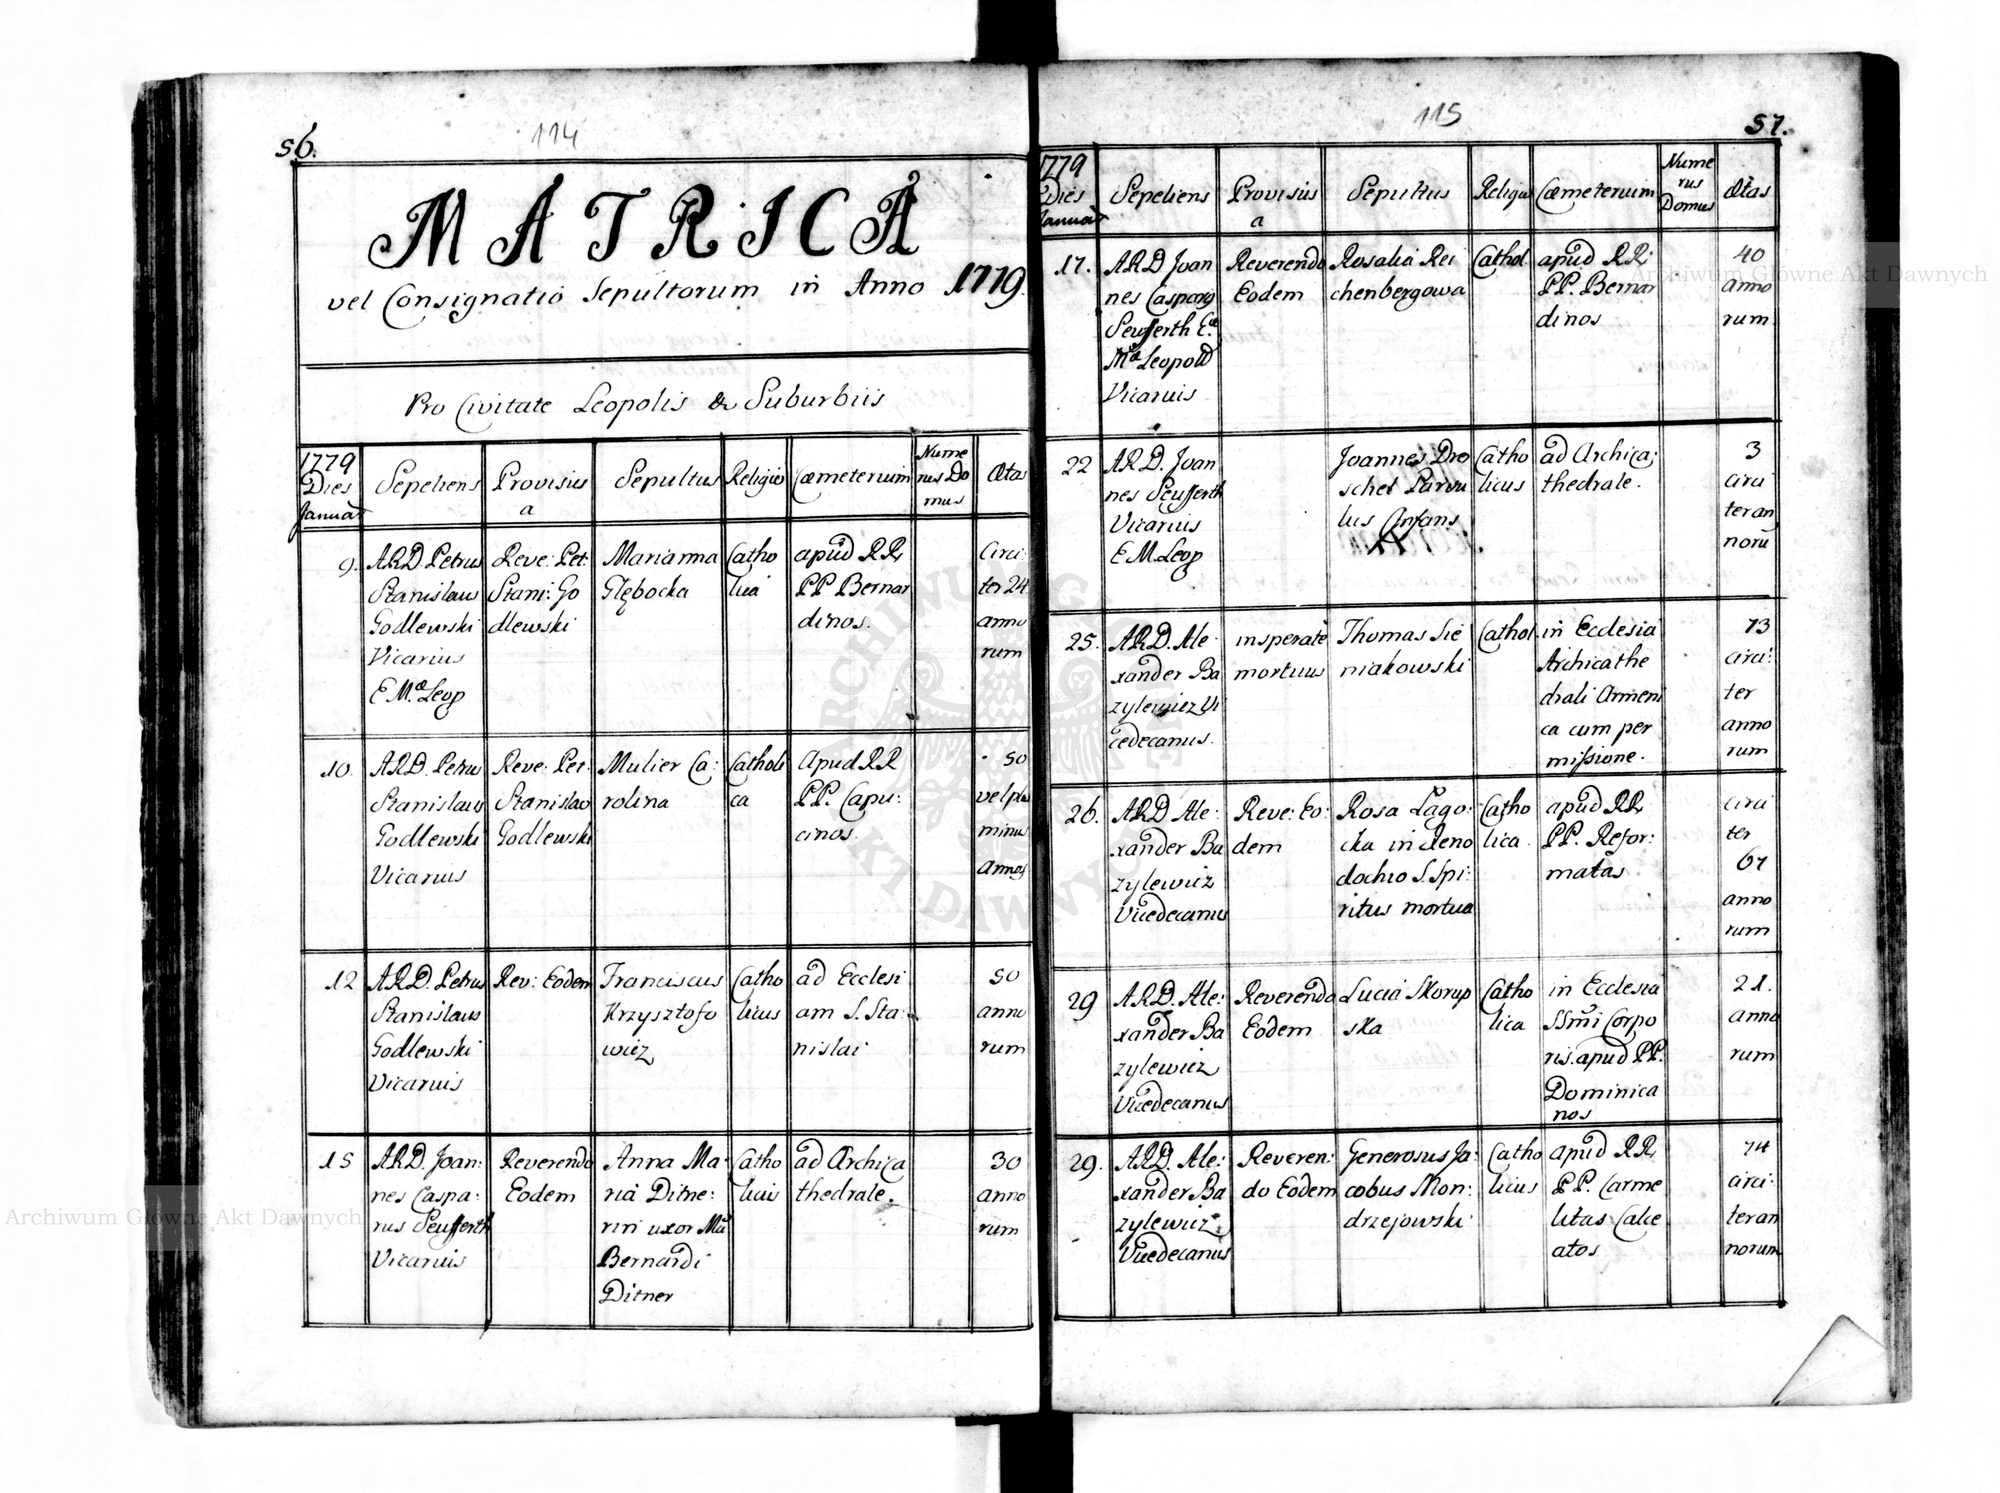 56.
114
MATRICA
vel Consignatio Sepultorum in Anno 1779.
Pro Civitate Leopolis & Suburbiis
1779 Dies Januar
Sepeliens
Provisus a
Sepultus
Religio
Cœmeterium
Nume
rus Do
mus
Ætas
9.
ARD Petrus
Stanislaus
Godlewski
Vicarius
E Mæ Leop
Reve: Pet:
Stani: Go
dlewski
Marianna
Głębocka
Catho
lica
apud RR
PP Bernar
dinos.
Circi
ter 24
anno
rum
10.
ARD. Petrus
Stanislaus
Godlewski
Vicarius
Reve: Pet:
Stanislao
Godlewski
Mulier Ca:
rolina
Catholi
ca
Apud RR
PP. Capu:
cinos.
50
vel plus
minus
annos
12
ARD. Petrus
Stanislaus
Godlewski
Vicarius
Rev: Eodem
Franciscus
Krzysztofo
wicz
Catho
licus
ad Ecclesi
am S. Sta:
nislai
50
anno
rum
15
ARD. Joan:
nes Caspa:
rus Seufferth
Vicarius
Reverendo
Eodem
Anna Ma:
ria Ditne:
rin uxor
Bernardi
Ditner
Catho
ad Archica
thedrale.
30
anno
rum
115
57.
1779
Dies
Januar
Sepeliens
Provisus
a
Sepultus
Religio
Cœmeterium
Nume
rus
Domus
Ætas
17.
ARD Joan
nes Caspary
Seufferth Eæ
Mæ Leopold
Vicarius
Reverendo
Eodem
Rosalia Rei
chenbergowa
Cathol
apud RR:
PP. Bernar
dinos
40
anno
rum
22
ARD. Joan
nes Seufferth
Vicarius
E M. Leop
Joannes Dro
schel Parvu
lus Infans
Catho
licus
ad Archica;
thedrale.
3
circi
ter an
noru
25.
ARD. Ale:
xander Ba
zylewicz Vi
cedecanus.
insperate
mortuus
Thomas Sie
niakowski
Cathol
in Ecclesia
Archicathe
drali Armeni
ca cum per
missione.
73
circi:
ter
anno
rum
26.
ARD Ale:
xander Ba
zylewicz
Vicedecanus
Reve: Eo:
dem
Rosa Łago:
cka in Xeno
dochio S. Spi:
ritus mortua
Catho
lica.
apud RR
PP. Refor:
matas
circi
ter
67
anno
rum
29
ARD. Ale:
xander Ba
zylewicz
Vicedecanus
Reverendo
Eodem
Lucia Skorup
ska
Catho
lica
in Ecclesia
SSmi Corpo
ris. apud PP.
Dominica
nos
21.
anno
rum
29.
ARD. Ale:
xander Ba
zylewicz
Vicedecanus
Reveren:
do Eodem
Generosus Ja:
cobus Mon:
drzejowski
Catho
licus
apud RR
PP. Carme
litas Calce
atos
74
circi:
ter an
norum
Archiwum Główne Akt Dawnych
Archiwum Główne Akt Dawnych
ARCHIWUM GŁÓWNE AKT DAWNYCH